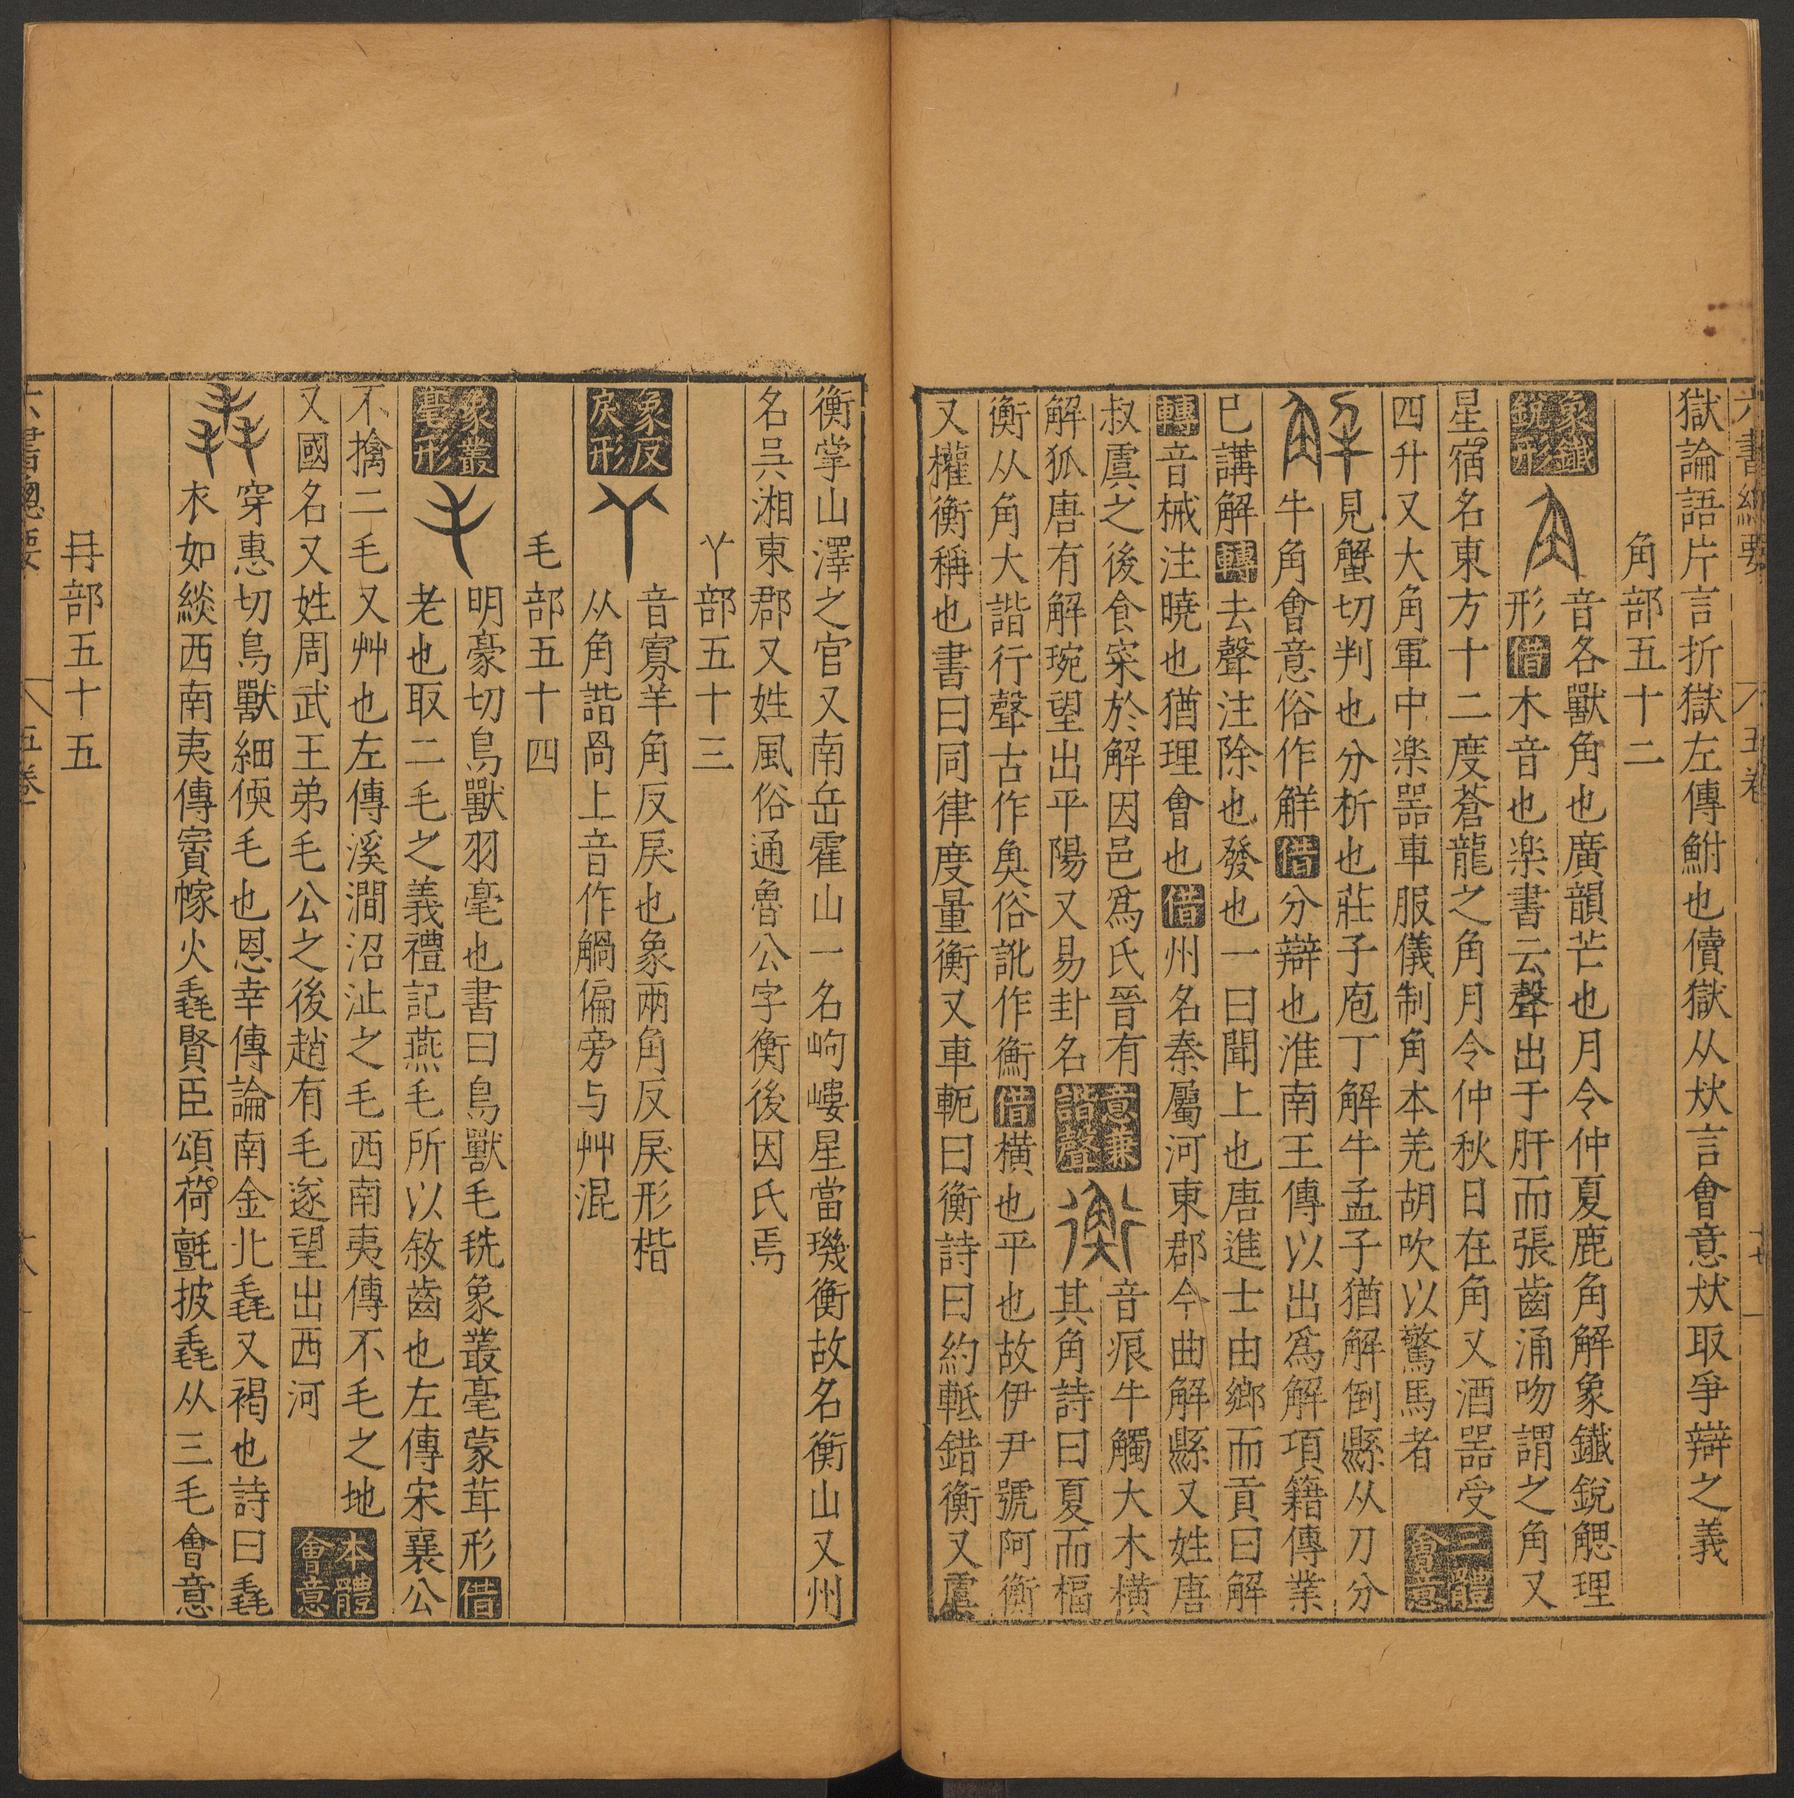 六書總要 五卷 十七
獄論語片言折獄左傳鮒也儥獄从㹜言會意㹜取爭辯之義
角部五十二
象鐵銳形 角 音各獸角也廣韻芒也月令仲夏鹿角解象鐵銳䚡理
形借木音也楽書云聲出于肝而張齒涌吻謂之角又
星宿名東方十二度蒼龍之角月令仲秋日在角又酒噐受
四升又大角軍中楽噐車服儀制角本羌胡吹以驚馬者 二體會意
解 見蟹切判也分析也莊子庖丁解牛孟子猶解倒縣从刀分
牛角會意俗作觧借分辯也淮南王傳以出爲解項籍傳業
巳講解轉去聲注除也發也一曰聞上也唐進士由鄉而貢曰解
轉音械注曉也猶理會也借州名秦屬河東郡今曲解縣又姓唐
叔虞之後食寀於解因邑爲氏晉有
解狐唐有解琬望出平陽又易卦名 意兼諧聲 衡 音痕牛觸大木橫
其角詩曰夏而楅
衡从角大諧行聲古作奐俗訛作衡借橫也平也故伊尹號阿衡
又權衡稱也書曰同律度量衡又車軛曰衡詩曰約軧錯衡又虞
衡掌山澤之官又南岳霍山一名岣嶁星當璣衡故名衡山又州
名吳湘東郡又姓風俗通魯公字衡後因氏焉
丫部五十三
象反戾形 丫 音寡羊角反戾也象兩角反戾形楷
从角諧咼上音作觸偏旁与艸混
毛部五十四
象叢毫形 毛 明豪切鳥獸羽毫也書曰鳥獸毛毨象叢毫蒙茸形借
老也取二毛之義禮記燕毛所以敘齒也左傳宋襄公
不擒二毛又艸也左傳溪澗沼沚之毛西南夷傳不毛之地
又國名又姓周武王弟毛公之後趙有毛遂望出西河 本體會意
毳 穿惠切鳥獸細㑌毛也恩幸傳論南金北毳又褐也詩曰毳
衣如緂西南夷傳賨幏火毳賢臣頌荷氈披毳从三毛會意
冉部五十五
六書總要 五卷 十八